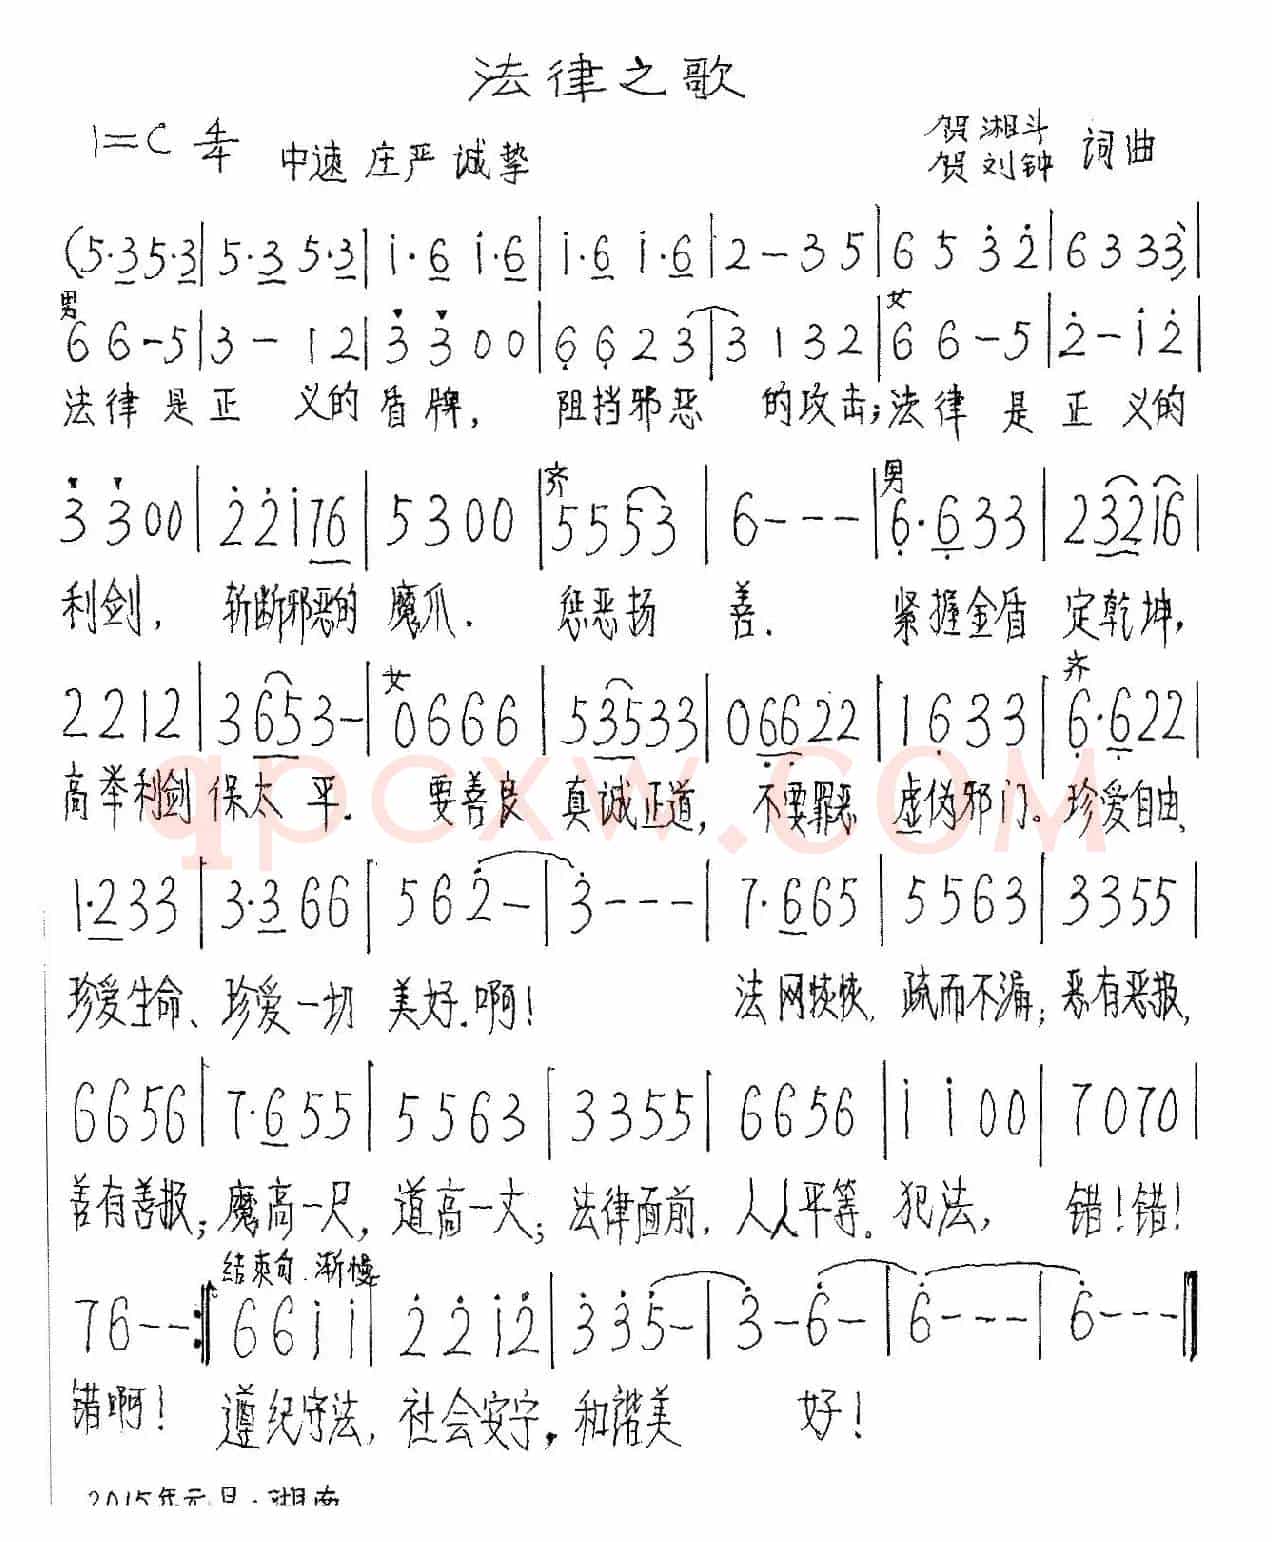 法律之歌
1=C 4/4 中速 庄严 诚挚
贺湘斗
贺刘钟 词曲
(5·3 5·3|5·3 5·3|i·6 i·6|i·6 i·6|2-35|65 3̇ 2̇|6333)|
男 女
66-5|3-12|3̇ 3̇ 00|6̣ 6̣ 23|3132|66-5|2̇-i 2̇|
法律是正 义的盾牌, 阻挡邪恶 的攻击;法律 是正 义的
齐 男
3̇ 3̇ 00|2̇ 2̇ i76|5300|5553|6---|6̣·6̣33|23216|
利剑, 斩断邪恶的 魔爪. 惩恶扬 善. 紧握金盾 定乾坤,
女 齐
2212|3653-|0666|53533|06̣6̣22|16̣33|6̣·6̣22|
高举利剑 保太平. 要善良 真诚正道, 不要罪恶 虚伪邪门。珍爱自由、
qpcxw.com
1·233|3·366|562̇-|3̇---|7·665|5563|3355|
珍爱生命、珍爱一切 美好.啊! 法网恢恢, 疏而不漏; 恶有恶报,
6656|7·655|5563|3355|6656|i i 00|7070|
善有善报; 魔高一尺, 道高一丈; 法律面前, 人人平等。犯法, 错!错!
结束句 渐慢
76--:‖66 i i|2̇ 2̇ i 2̇|3̇ 3̇ 5̇-|3̇-6̇-|6̇---|6̇---‖
错啊! 遵纪守法, 社会安宁, 和谐美 好!
2015年元旦·湘南